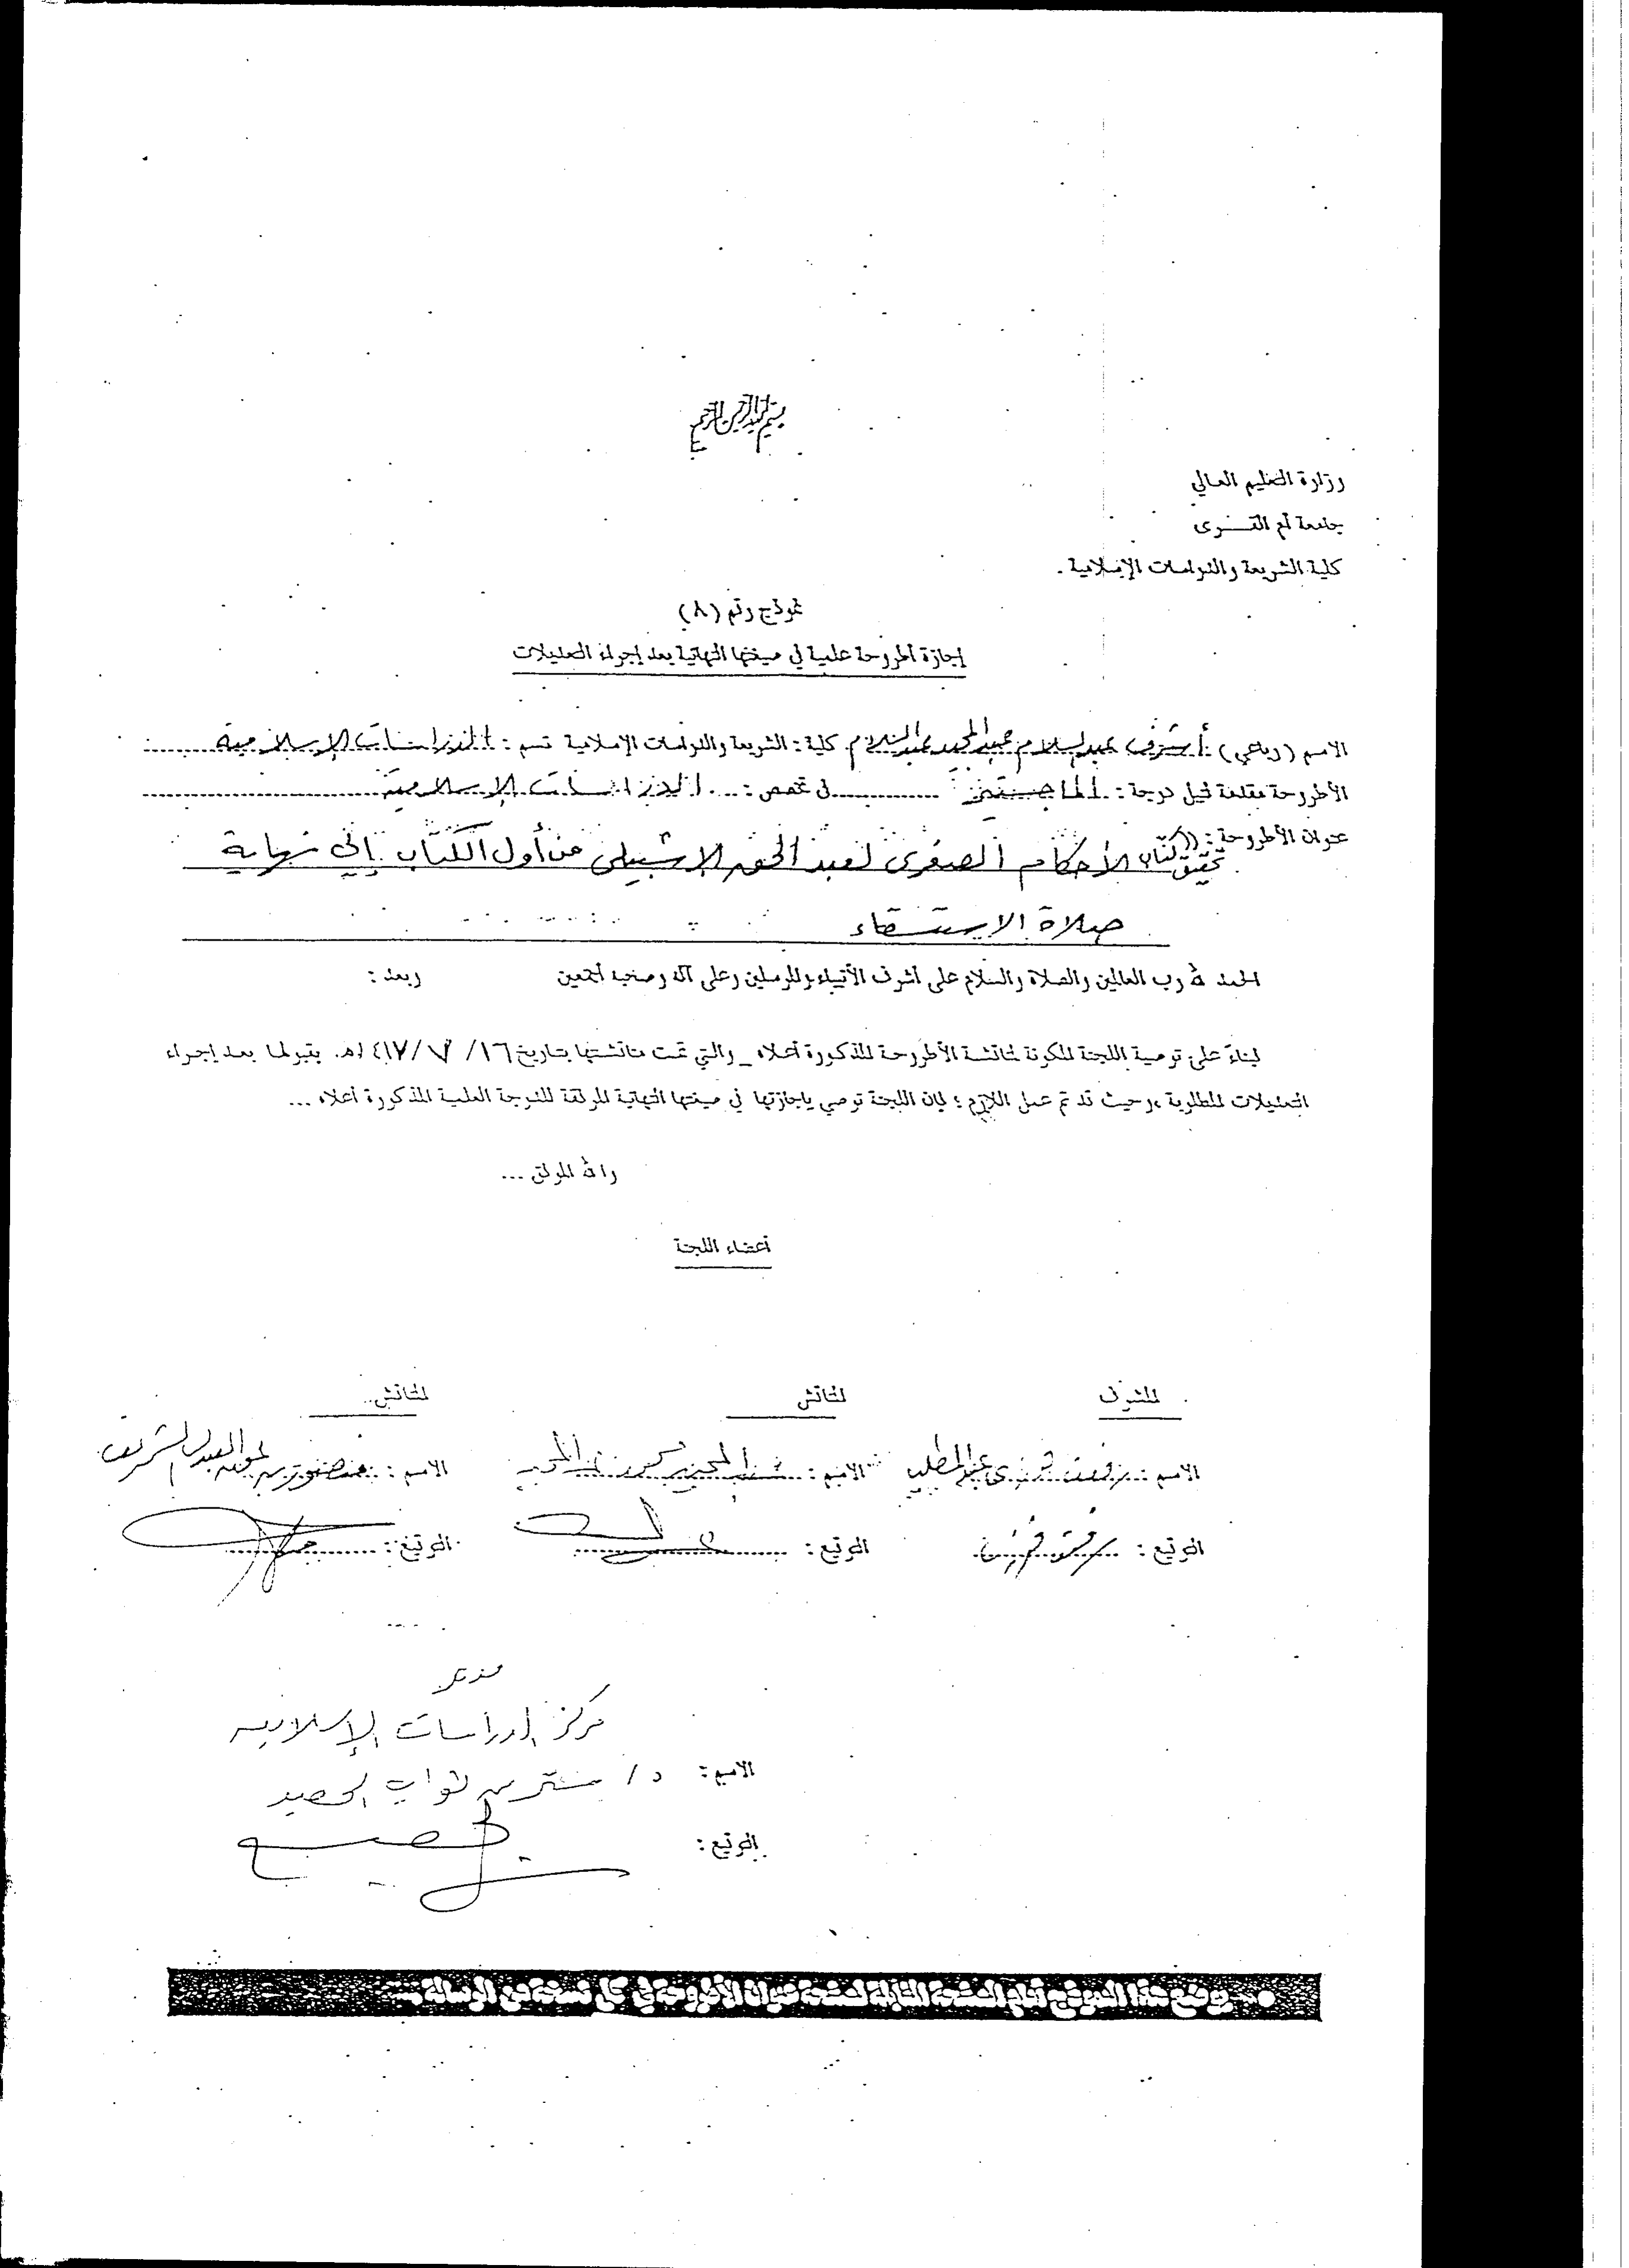 بسم الله الرحمن الرحيم
وزارة التعليم العالي
جامعة أم القــرى
كلية الشريعة والدراسات الإسلامية .
نموذج رقم (٨)
إجازة أطروحة علمية في صيغتها النهائية بعد إجراء التعديلات
الاسم (رباعي) : أشرف عبد السلام عبد المجيد عبد السلام كلية : الشريعة والدراسات الإسلامية قسم : الدراسات الإسلامية
الأطروحة مقدمة لنيل درجة : الماجستير في تخصص : الدراسات الإسلامية
عنوان الأطروحة : ((
تحقيق كتاب الأحكام الصغرى لعبد الحق الإشبيلي من أول الكتاب إلى نهاية
صلاة الاستسقاء
الحمد لله رب العالمين والصلاة والسلام على أشرف الأنبياء والمرسلين وعلى آله وصحبه أجمعين وبعد :
فبناءً على توصية اللجنة المكونة لمناقشة الأطروحة المذكورة أعلاه _ والتي تمت مناقشتها بتاريخ ١٦/ ٧/ ١٤١٧هـ. بقبولها بعد إجراء
التعديلات المطلوبة ، وحيث قد تم عمل اللازم ؛ فإن اللجنة توصي بإجازتها في صيغتها النهائية المرفقة للدرجة العلمية المذكورة أعلاه ...
والله الموفق ...
أعضاء اللجنة
المشرف المناقش المناقش
الاسم : رفعت فوزي عبد المطلب الاسم : عبد المجيد محمود عبد المجيد الاسم : منصور بن عون العبدلي الشريف
التوقيع : التوقيع : التوقيع :
مدير
مركز الدراسات الإسلامية
الاسم : د / ستر بن ثواب الجعيد
التوقيع :
يوضع هذا النموذج أمام الصفحة المقابلة لصفحة عنوان الأطروحة في كل نسخة من الرسالة